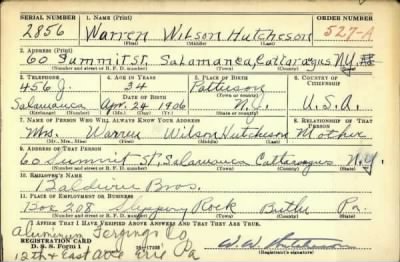 SERIAL NUMBER 1. NAME (Print) ORDER NUMBER
2856 Warren Wilson Hutcheson 527-A
(First) (Middle) (Last)
2. ADDRESS (Print)
60 Summit St. Salamanca, Cattaraugus N.Y.
(Number and street or R. F. D. number) (Town) (County) (State)
3. TELEPHONE 4. AGE IN YEARS 5. PLACE OF BIRTH 6. COUNTRY OF CITIZENSHIP
456 J. 34 Patterson
DATE OF BIRTH
Salamanca Apr. 24 1906 N.J. U.S.A.
(Exchange) (Number) (Mo.) (Day) (Yr.) (State or country)
7. NAME OF PERSON WHO WILL ALWAYS KNOW YOUR ADDRESS 8. RELATIONSHIP OF THAT PERSON
Mrs. Warren Wilson Hutcheson Mother
(Mr., Mrs., Miss) (First) (Middle) (Last)
9. ADDRESS OF THAT PERSON
60 Summit St, Salamanca Cattaraugus N.Y.
(Number and street or R. F. D. number) (Town) (County) (State)
10. EMPLOYER'S NAME
Baldwin Bros.
11. PLACE OF EMPLOYMENT OR BUSINESS
Box 208 Slippery Rock Butler Pa.
(Number and street or R. F. D. number) (Town) (County) (State)
I AFFIRM THAT I HAVE VERIFIED ABOVE ANSWERS AND THAT THEY ARE TRUE.
Aluminum Forgings Co
REGISTRATION CARD
D. S. S. Form 1 W. W. Hutcheson
12th & East Ave Erie Pa (Registrant's signature)